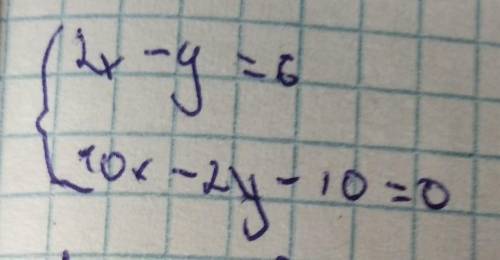 2x - y = 6
10x - 2y - 10 = 0